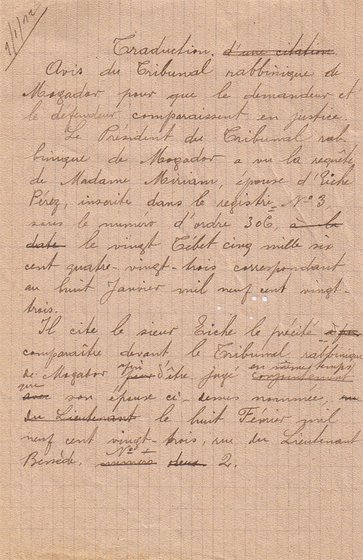 Traduction. d'une citation
Avis du Tribunal rabbinique de
Mogador pour que le demandeur et
le défendeur comparaissent en justice.
Le Président du Tribunal rab-
binique de Mogador a vu la requête
de Madame Miriam, épouse d'Eiche
Pérez, inscrite dans le registre N° 3
sous le numéro d'ordre 306, à la
date le vingt Tebet cinq mille six
cent quatre-vingt-trois correspondant
au huit Janvier mil neuf cent vingt-
trois.
Il cite le sieur Eiche le précité à
comparaître devant le Tribunal rabbinique
de Mogador d'être jugé en même temps conjointement
que avec son épouse ci-dessus nommée,
du Lieutenant le huit Février mil
neuf cent vingt-trois, rue du Lieutenant
N° numéro deux 2.